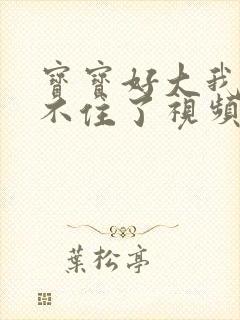 寶寶好大我
不住了視頻
葉松亭